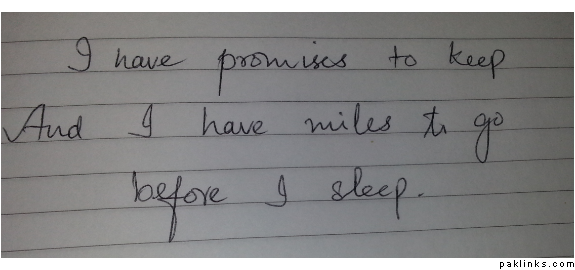 I have promises to keep
And I have miles to go
before I sleep.
paklinks.com